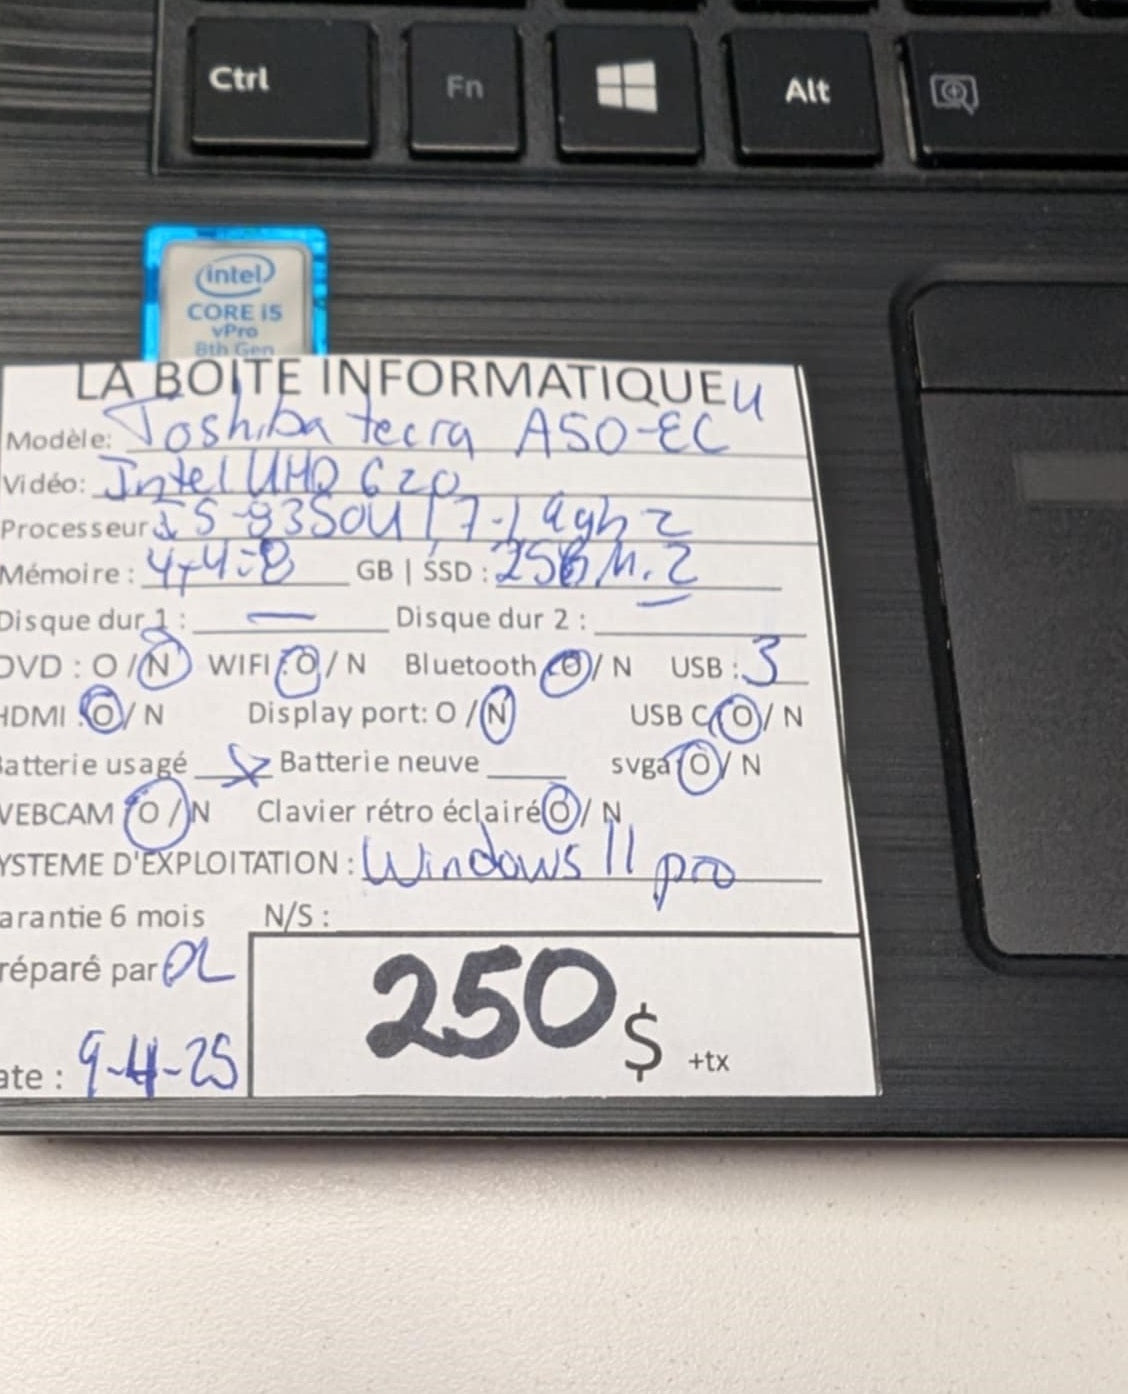 Ctrl Fn Alt
intel
CORE i5
vPro
8th Gen
LA BOITE INFORMATIQUE 4
Modèle: Toshiba tecra A50-EC
Vidéo: Intel UHD 620
Processeur i5-8350U | 7-1.9ghz
Mémoire : 4+4=8 GB | SSD : 256 M.2
Disque dur 1 : — Disque dur 2 :
DVD : O / N WIFI : O / N Bluetooth : O / N USB : 3
HDMI : O / N Display port: O / N USB C : O / N
Batterie usagé X Batterie neuve svga O / N
WEBCAM O / N Clavier rétro éclairé O / N
YSTEME D'EXPLOITATION : Windows 11 pro
arantie 6 mois N/S :
réparé par DL
250 $ +tx
ate : 9-4-25